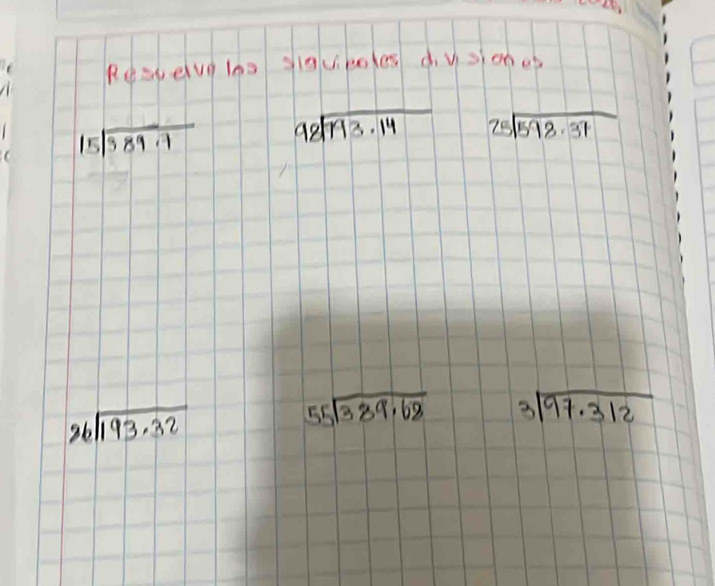 Resuelve las siguientes divisiones
15 389.7 98 793.14 25 598.37
36 193.32 55 389.62 3 97.312